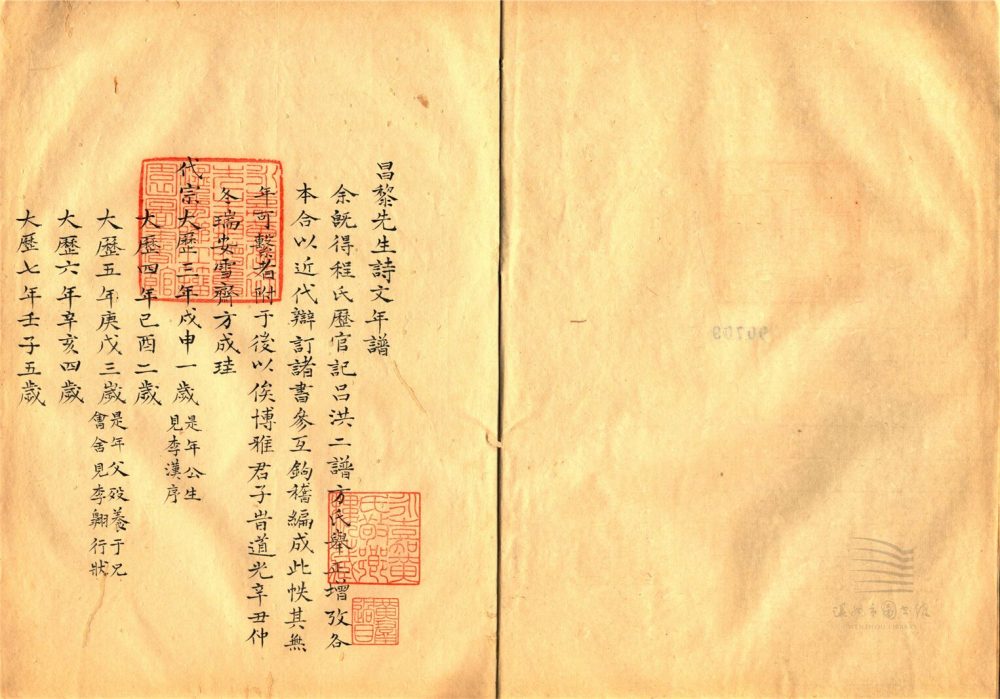 昌黎先生詩文年譜
余既得程氏歷官記呂洪二譜方氏舉正增攷各
本合以近代辯訂諸書參互鉤稽編成此帙其無
年可繫者附于後以俟博雅君子旹道光辛丑仲
冬瑞安雪齊方成珪
代宗大歷三年戊申一歲是年公生
見李漢序
大歷四年己酉二歲
大歷五年庚戌三歲是年父歿養于兄
會舍見李翱行狀
大歷六年辛亥四歲
大歷七年壬子五歲
永嘉黃
90709
溫州市圖書館
WENZHOU LIBRARY